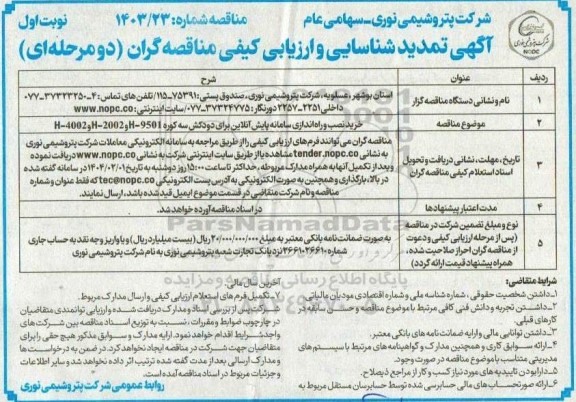 شرکت پتروشیمی نوری-سهامی عام
مناقصه شماره: ۱۴۰۳/۲۳
نوبت اول
آگهی تمدید شناسایی و ارزیابی کیفی مناقصه گران (دو مرحله‌ای)
NOPC
ردیف عنوان شرح
۱ نام و نشانی دستگاه مناقصه گزار
استان بوشهر، عسلویه، شرکت پتروشیمی نوری، صندوق پستی: ۷۵۳۹۱-۱۱۵/تلفن های تماس: ۴-۳۷۳۲۳۲۵۰-۰۷۷
داخلی ۲۲۵۱-۲۲۵۷ دورنگار: ۳۷۳۲۴۷۷۵-۰۷۷/سایت اینترنتی: www.nopc.co
۲ موضوع مناقصه
خرید نصب و راه اندازی سامانه پایش آنلاین برای دودکش سه کوره H-9501 و H-2002 و H-4002
۳ تاریخ، مهلت، نشانی دریافت و تحویل
اسناد استعلام کیفی مناقصه گران
مناقصه گران می توانند فرم های ارزیابی کیفی را از طریق مراجعه به سامانه الکترونیکی معاملات شرکت پتروشیمی نوری
به نشانی tender.nopc.co مشاهده یا از طریق سایت اینترنتی شرکت به نشانی www.nopc.co دریافت نموده
و بعد از تکمیل آنها به همراه مدارک مربوطه، حداکثر تا ساعت ۱۵:۰۰ روز دوشنبه به تاریخ ۱۴۰۴/۰۲/۰۱ در سامانه گفته شده
در بالا، بارگذاری و همچنین به صورت الکترونیکی به آدرس پست الکترونیکی tac@nopc.co که فقط عنوان و شماره
مناقصه و نام شرکت متقاضی در قسمت موضوع ایمیل قید شده باشد، ارسال نمایند.
۴ مدت اعتبار پیشنهادها
در اسناد مناقصه آورده خواهد شد.
۵ نوع و مبلغ تضمین شرکت در مناقصه
(پس از مرحله ارزیابی کیفی و دعوت
از مناقصه گران احراز صلاحیت شده،
همراه پیشنهاد قیمت ارائه گردد)
به صورت ضمانت نامه بانکی معتبر به مبلغ ۲۰/۰۰۰/۰۰۰/۰۰۰ ریال (بیست میلیارد ریال) و یا واریز وجه نقد به حساب جاری
نزد بانک تجارت شعبه پتروشیمی نوری به نام شرکت پتروشیمی نوری
ParsNamadData
پایگاه اطلاع رسانی مناقصه و مزایده
شرایط متقاضی:
۱-داشتن شخصیت حقوقی، شماره شناسه ملی و شماره اقتصادی مودیان مالیاتی
۲-داشتن تجربه و دانش فنی کافی مرتبط با موضوع مناقصه و حسن سابقه در
کارهای قبلی
۳-داشتن توانایی مالی و ارایه ضمانت نامه های بانکی معتبر.
۴-ارائه سوابق کاری و همچنین مدارک و گواهینامه های مرتبط با سیستم های
مدیریتی متناسب با موضوع مناقصه در صورت وجود.
۵-دارا بودن تاییدیه های مورد نیاز کسب و کار از مراجع ذیصلاح.
۶-ارائه صورتحساب های مالی حسابرسی شده توسط حسابرسان مستقل مربوط به
آخرین سال مالی
۷-تکمیل فرم های استعلام ارزیابی کیفی و ارسال مدارک مربوط.
شرکت پس از بررسی اسناد و مدارک دریافت شده و ارزیابی توانمندی متقاضیان
در چارچوب ضوابط و مقررات، نسبت به توزیع اسناد مناقصه بین شرکت های
واجد شرایط اقدام خواهد نمود. ارایه مدارک و سوابق مذکور هیچ حقی را برای
متقاضیان جهت شرکت در مناقصه ایجاد نخواهد کرد. در ضمن به درخواست ها
و مدارک ارسالی بعد از مدت گفته شده ترتیب اثر داده نخواهد شد و سایر اطلاعات
و جزئیات مربوط در اسناد مناقصه آمده است.
روابط عمومی شرکت پتروشیمی نوری